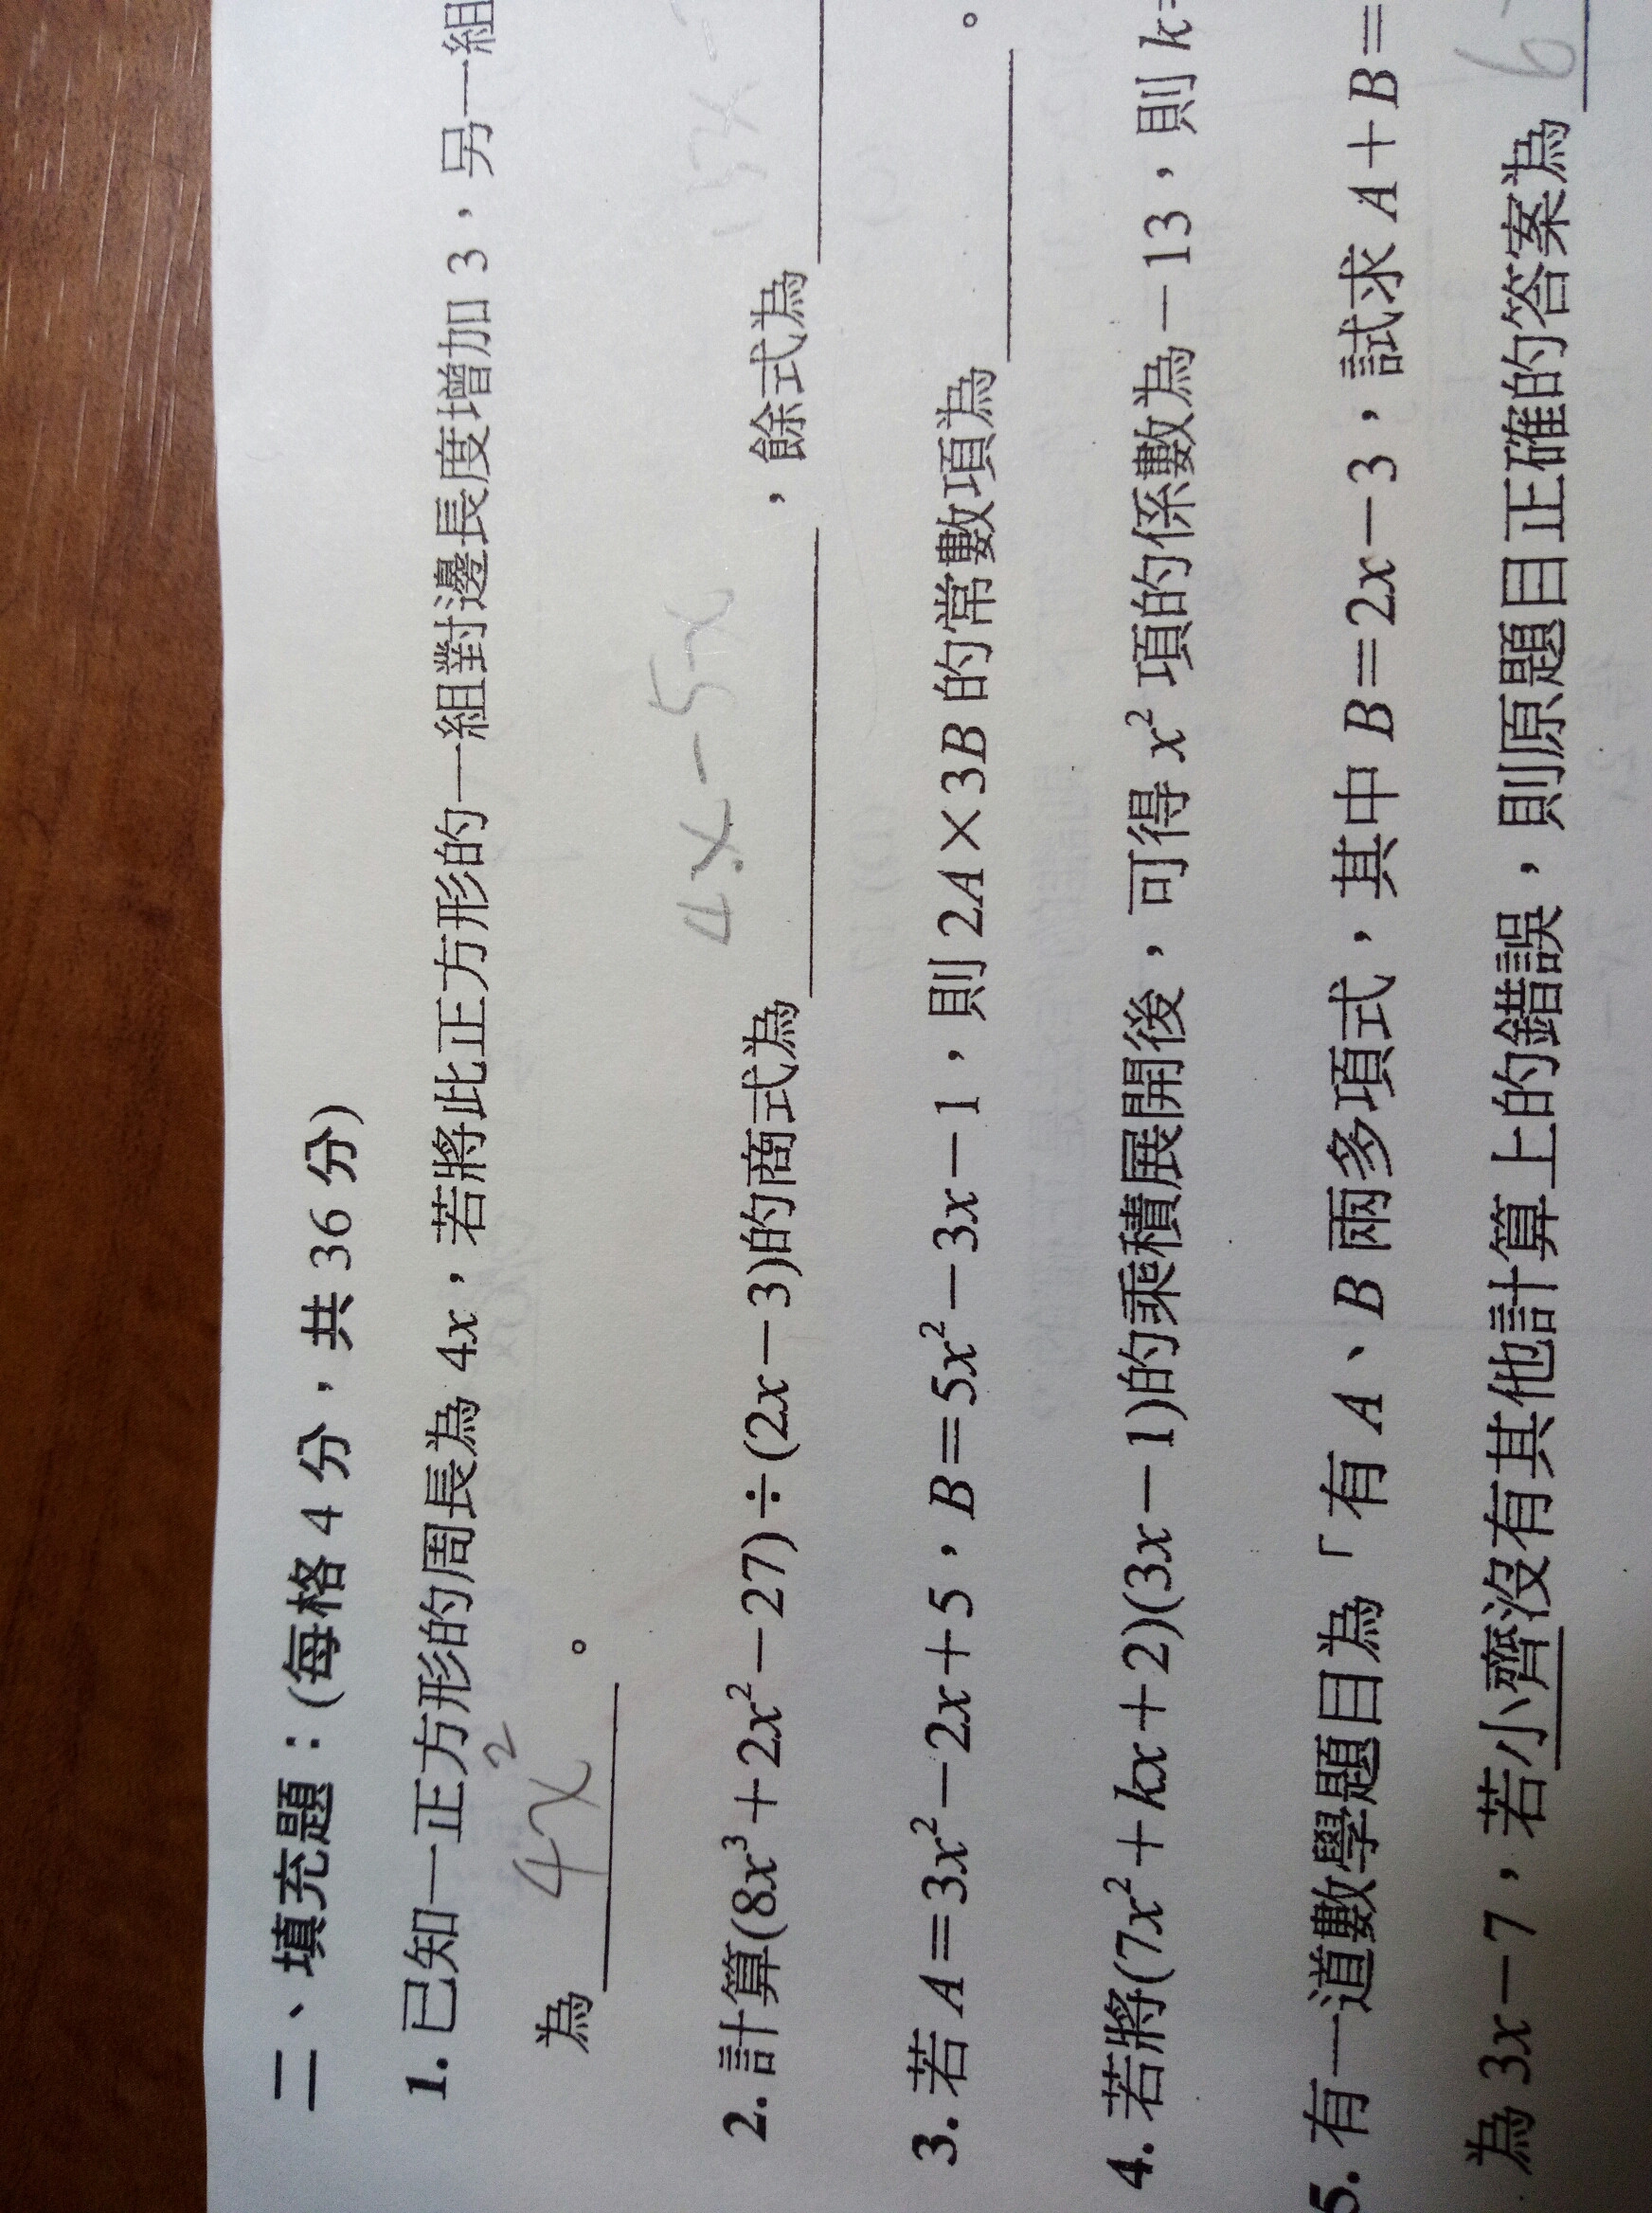 二、填充題：(每格 4 分，共 36 分)
1. 已知一正方形的周長為 4x，若將此正方形的一組對邊長度增加 3，另一組
為 4x² 。
4x-5x
2. 計算(8x³＋2x²－27)÷(2x－3)的商式為 ，餘式為
3. 若 A＝3x²－2x＋5，B＝5x²－3x－1，則 2A×3B 的常數項為 。
4. 若將(7x²＋kx＋2)(3x－1)的乘積展開後，可得 x² 項的係數為－13，則 k＝
5. 有一道數學題目為「有 A、B 兩多項式，其中 B＝2x－3，試求 A＋B＝
為 3x－7，若小齊沒有其他計算上的錯誤，則原題目正確的答案為